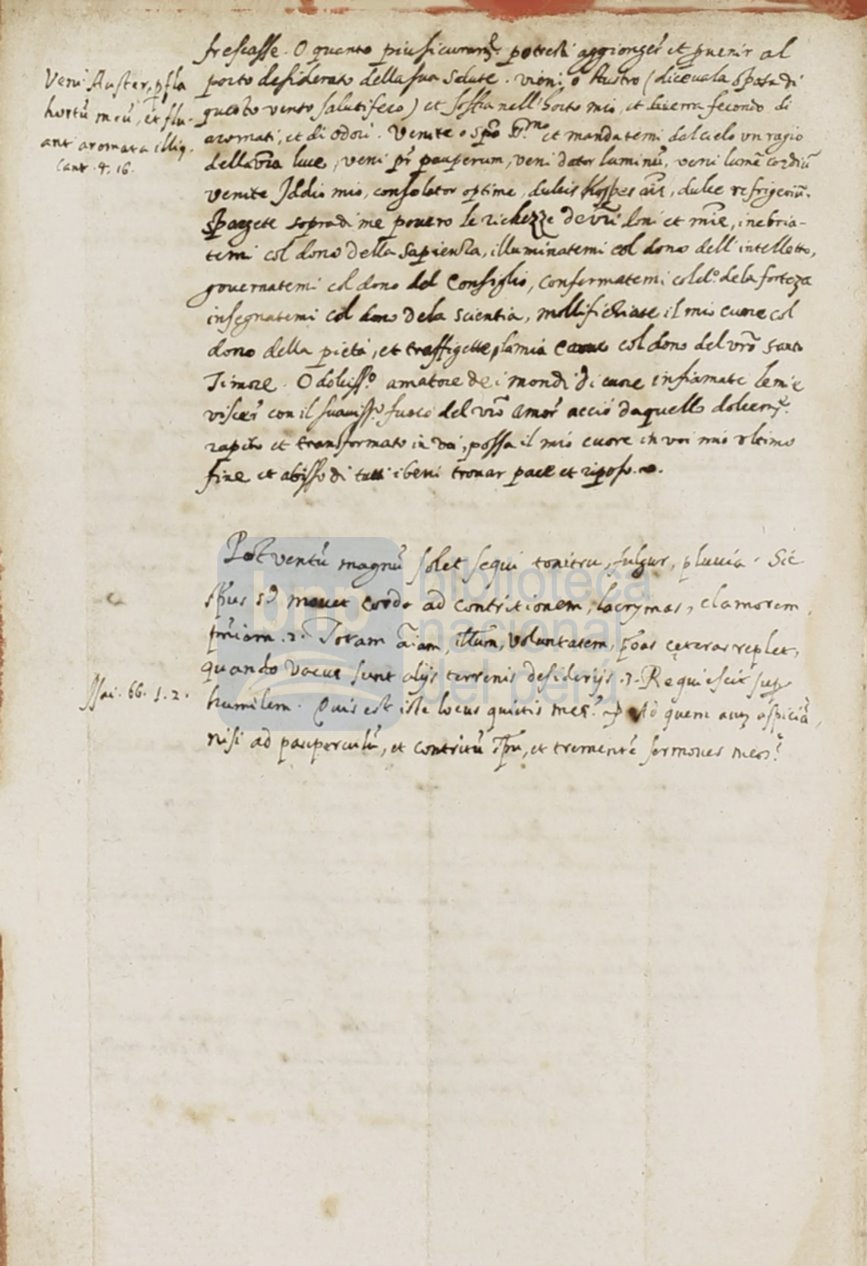 frescasse. O quanto piu sicuramẽ. potresti aggionger et puenir al
porto desiderato della sua salute. vieni, o Austro (diceua la sposa di
questo vento salutifero) et soffia nell'horto mio, et
aromati, et di odori. Venite o spõ s.mo et mandatemi dal cielo vn ragio
della vrã luce, veni pr̃ pauperum, veni dator luminũ, veni lumẽ cordiũ
venite Iddio mio, consolator optime, dulcis hospes aĩe, dulce refrigeriũ.
Spargete sopra di me pouero le richezze de vrĩ doni et , inebria-
temi col dono della sapienzia, illuminatemi col dono dell'intelletto,
gouernatemi col dono del Consiglio, confermatemi col d.o de la forteza
insegnatemi col dono dela scientia, mollifichiate il mio cuore col
dono della pietà, et traffigette la mia carne col dono del vrõ santo
Timore. O dolciss.o amatore dei mondi di cuore infiamate le mie
viscer̃ con il suauiss.o fuoco del vrõ amor̃ acciò da quello dolcemẽ.
rapito et transformato in voi, possa il mio cuore in voi mio vltimo
fine et abisso di tutti i beni trouar pace et riposo.
Veni Auster, pfla
hortũ meũ, et flu-
ant aromata illiq.
Cant. 4. 16.
Post ventũ magnũ solet sequi tonitru, fulgur, pluuia. Sic
spũs sõ mouet corda ad contritionem, lacrymas, clamorem,
pñiam. 2. Totam aĩam, illum, voluntatem, põas cęteras replet,
quando vacue sunt alijs terrenis desiderijs. 3. Requiescit sup
humilem. Quis est iste locus quietis meę? Ad quem aut aspiciã,
nisi ad pauperculũ, et contritũ spũ, et trementẽ sermones meos?
Isai. 66. 1. 2.
biblioteca
nacional
del perú